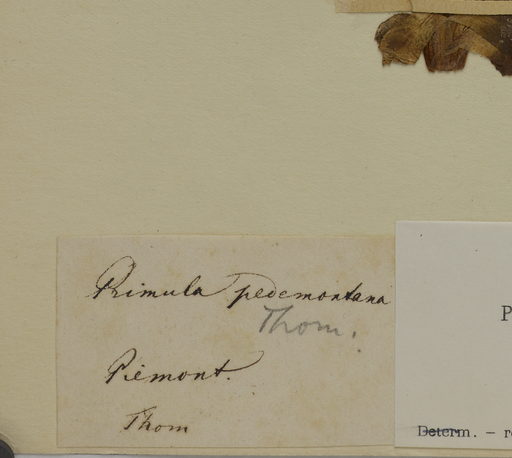 Primula pedemontana
Thom.
Piemont.
Thom
P
Determ. – r